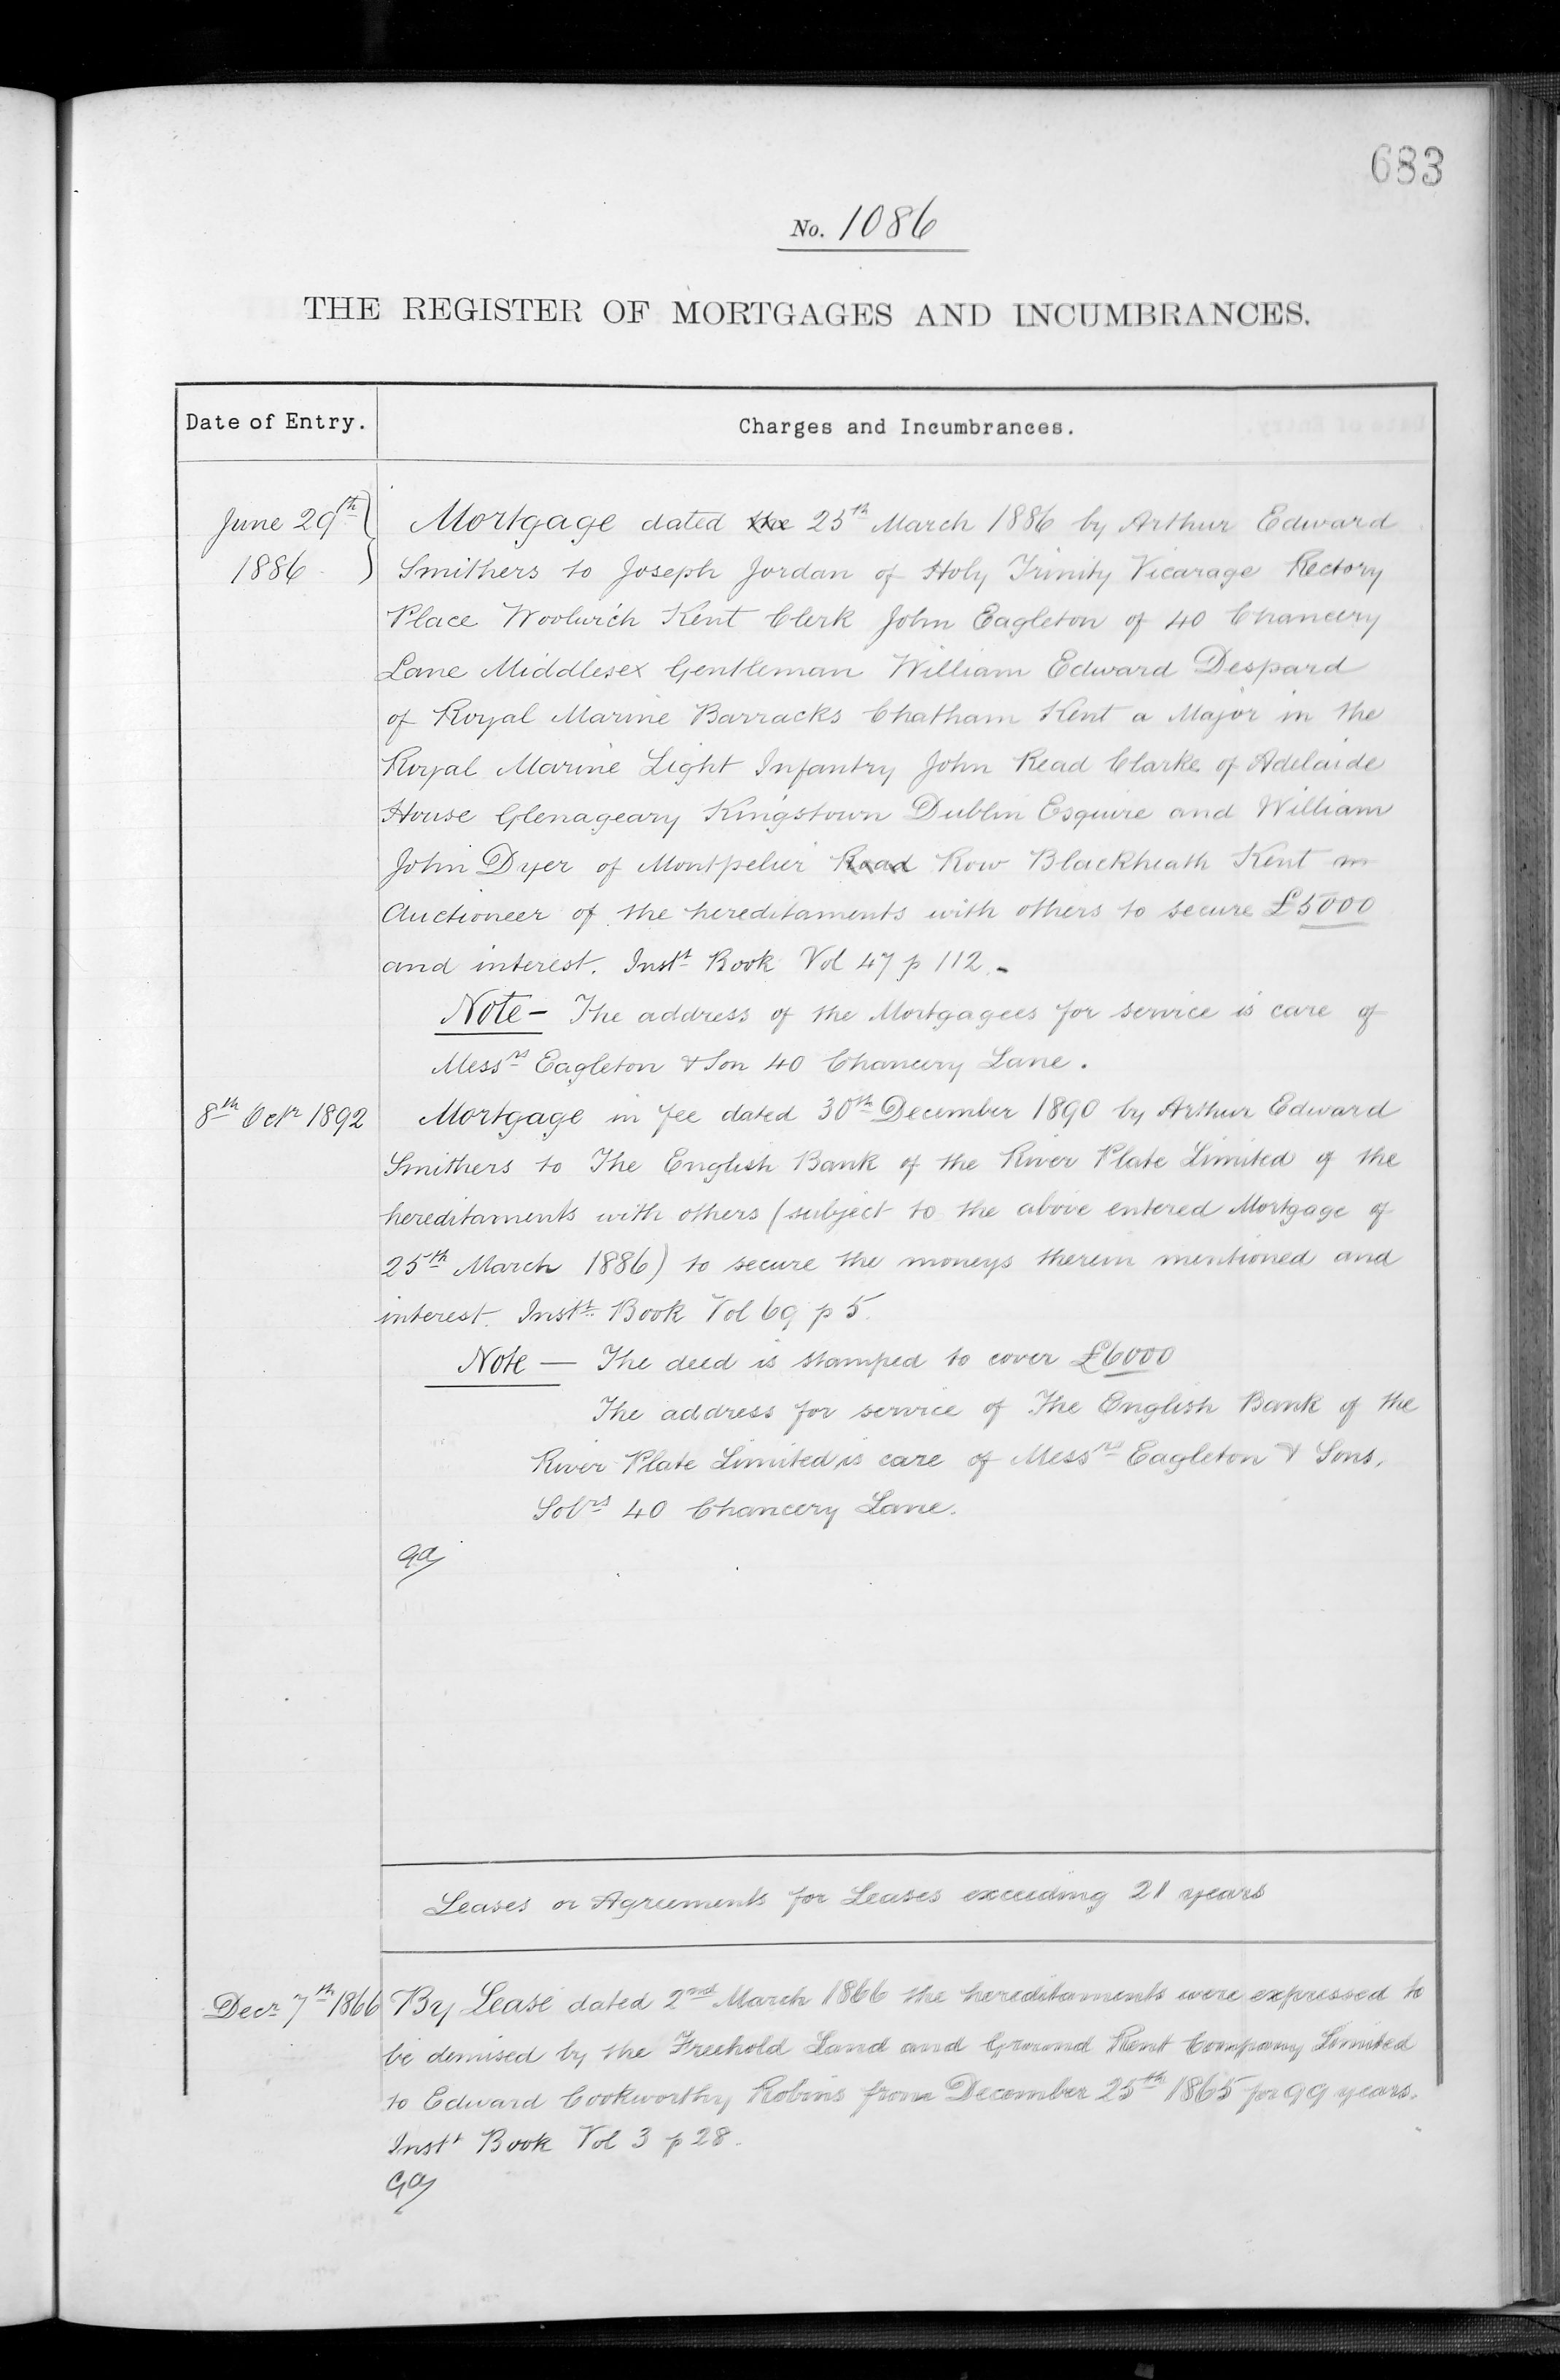 683
No. 1086
THE REGISTER OF MORTGAGES AND INCUMBRANCES.
Date of Entry.
Charges and Incumbrances.
June 29th 1886
Mortgage dated the 25th March 1886 by Arthur Edward
Smithers to Joseph Jordan of Holy Trinity Vicarage Rectory
Place Woolwich Kent Clerk John Eagleton of 40 Chancery
Lane Middlesex Gentleman William Edward Despard
of Royal Marine Barracks Chatham Kent a Major in the
Royal Marine Light Infantry John Read Clarke of Adelaide
House Glenageary Kingstown Dublin Esquire and William
John Dyer of Montpelier Road Row Blackheath Kent
Auctioneer of the hereditaments with others to secure £5000
and interest. Instt Book Vol 47 p 112.
Note - The address of the Mortgagees for service is care of
Messrs Eagleton & Son 40 Chancery Lane.
8th Octr 1892
Mortgage in fee dated 30th December 1890 by Arthur Edward
Smithers to The English Bank of the River Plate Limited of the
hereditaments with others (subject to the above entered Mortgage of
25th March 1886) to secure the moneys therein mentioned and
interest. Instt Book Vol 69 p 5.
Note — The deed is stamped to cover £6000
The address for service of The English Bank of the
River Plate Limited is care of Messrs Eagleton & Sons,
Solrs 40 Chancery Lane.
Leases or Agreements for Leases exceeding 21 years
Decr 7th 1866
By Lease dated 2nd March 1866 the hereditaments were expressed to
be demised by the Freehold Land and Ground Rent Company Limited
to Edward Cookworthy Robins from December 25th 1865 for 99 years.
Instt Book Vol 3 p 28.